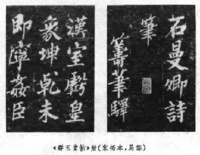 石曼卿詩
筆
籌筆驛
漢室虧皇
象坤乾未
即寧姦臣
《群玉堂帖》册(宋拓本,局部)